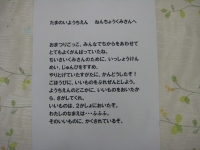 たまのいようちえん　ねんちょうくみさんへ
おまつりごっこ、みんなでちからをあわせて
とてもよくがんばっていたね。
ちいさいくみさんのために、いっしょうけん
めい、じゅんびをすすめ、
やりとげていたすがたに、かんどうしたぞ！
ごほうびに、いいものをぷれぜんとしよう。
ようちえんのどこかに、いいものをおいたか
ら、さがしてくれ。
いいものは、2かしょにおいたぞ。
わたしのなまえは・・・ふふふ。
そのいいものに、かくされているぞ。